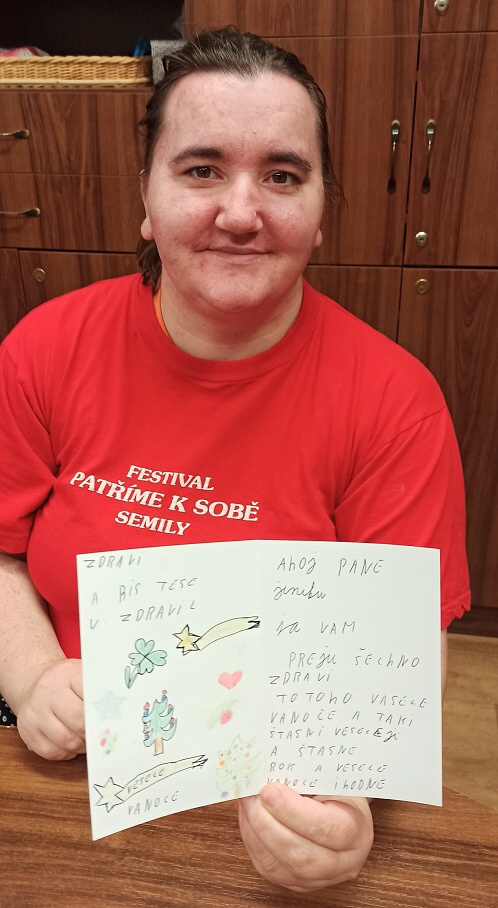 FESTIVAL
PATŘÍME K SOBĚ
SEMILY
ZDRAVI
A BIS TESE
U ZDRAVIL
VESELE
VANOCE
AhOJ PANE
ja VAM
PREJU ŠECHNO
ZDRAVI
TO TOHO VASELE
VANOČE A TAKI
ŠTASNI VESELEJI
A ŠTASNE
ROK A VESELE
VANOCE i hODNE